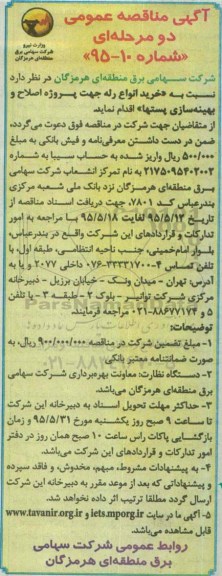 وزارت نیرو
شرکت سهامی برق منطقه‌ای هرمزگان
آگهی مناقصه عمومی
دو مرحله‌ای
«شماره ۱۰-۹۵»
شرکت سهامی برق منطقه‌ای هرمزگان در نظر دارد
نسبت به «خرید انواع رله جهت پروژه اصلاح و
بهینه‌سازی پستها» اقدام نماید.
از متقاضیان جهت شرکت در مناقصه فوق دعوت می‌گردد،
ضمن در دست داشتن معرفی‌نامه و فیش بانکی به مبلغ
۵۰۰/۰۰۰ ریال واریز شده به حساب سیبا به شماره
۲۱۷۵۰۹۵۴۰۳۰۰۳ به نام تمرکز انشعاب شرکت سهامی
برق منطقه‌ای هرمزگان نزد بانک ملی شعبه مرکزی
بندرعباس کد ۷۸۰۱، جهت دریافت اسناد مناقصه از
تاریخ ۹۵/۵/۱۳ لغایت ۹۵/۵/۱۸ با مراجعه به امور
تدارکات و قراردادهای این شرکت واقع در بندرعباس،
بلوار امام‌خمینی، جنب ناحیه انتظامی، طبقه اول، با
تلفن تماس ۴-۳۳۳۳۱۷۰۰-۰۷۶ داخلی ۲۰۷۷ و یا به
آدرس: تهران - میدان ونک - خیابان برزیل - دبیرخانه
مرکزی شرکت توانیر - بلوک ۲ - طبقه ۳ - با تلفن
۵ و ۸۸۶۷۷۱۷۴-۰۲۱ مراجعه فرمایند.
توضیحات:
۱- مبلغ تضمین شرکت در مناقصه ۹۰۰/۰۰۰/۰۰۰ ریال، به
صورت ضمانتنامه معتبر بانکی
۲- دستگاه نظارت: معاونت بهره‌برداری شرکت سهامی
برق منطقه‌ای هرمزگان می‌باشد.
۳- حداکثر مهلت تحویل اسناد به دبیرخانه این شرکت
تا ساعت ۹ صبح روز یکشنبه مورخ ۹۵/۵/۳۱ و زمان
بازگشایی پاکات راس ساعت ۱۰ صبح همان روز در دفتر
امور تدارکات و قراردادهای این شرکت می‌باشد.
۴- به پیشنهادات مشروط، مبهم، مخدوش، و فاقد سپرده
و پیشنهاداتی که بعد از موعد مقرر به دبیرخانه این شرکت
ارسال گردد مطلقا ترتیب اثر داده نخواهد شد.
۵- آگهی ما در سایت iets.mporg.ir و www.tavanir.org.ir
قابل مشاهده می‌باشد.
روابط عمومی شرکت سهامی
برق منطقه‌ای هرمزگان